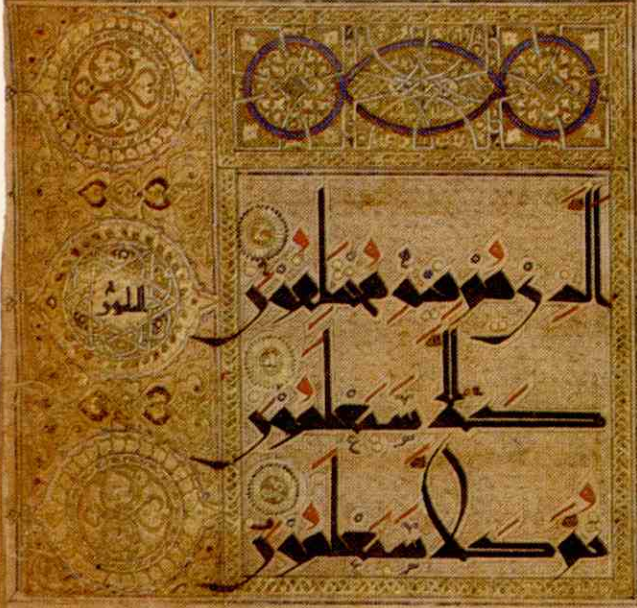 الذي هم فيه مختلفون
كلا سيعلمون
ثم كلا سيعلمون